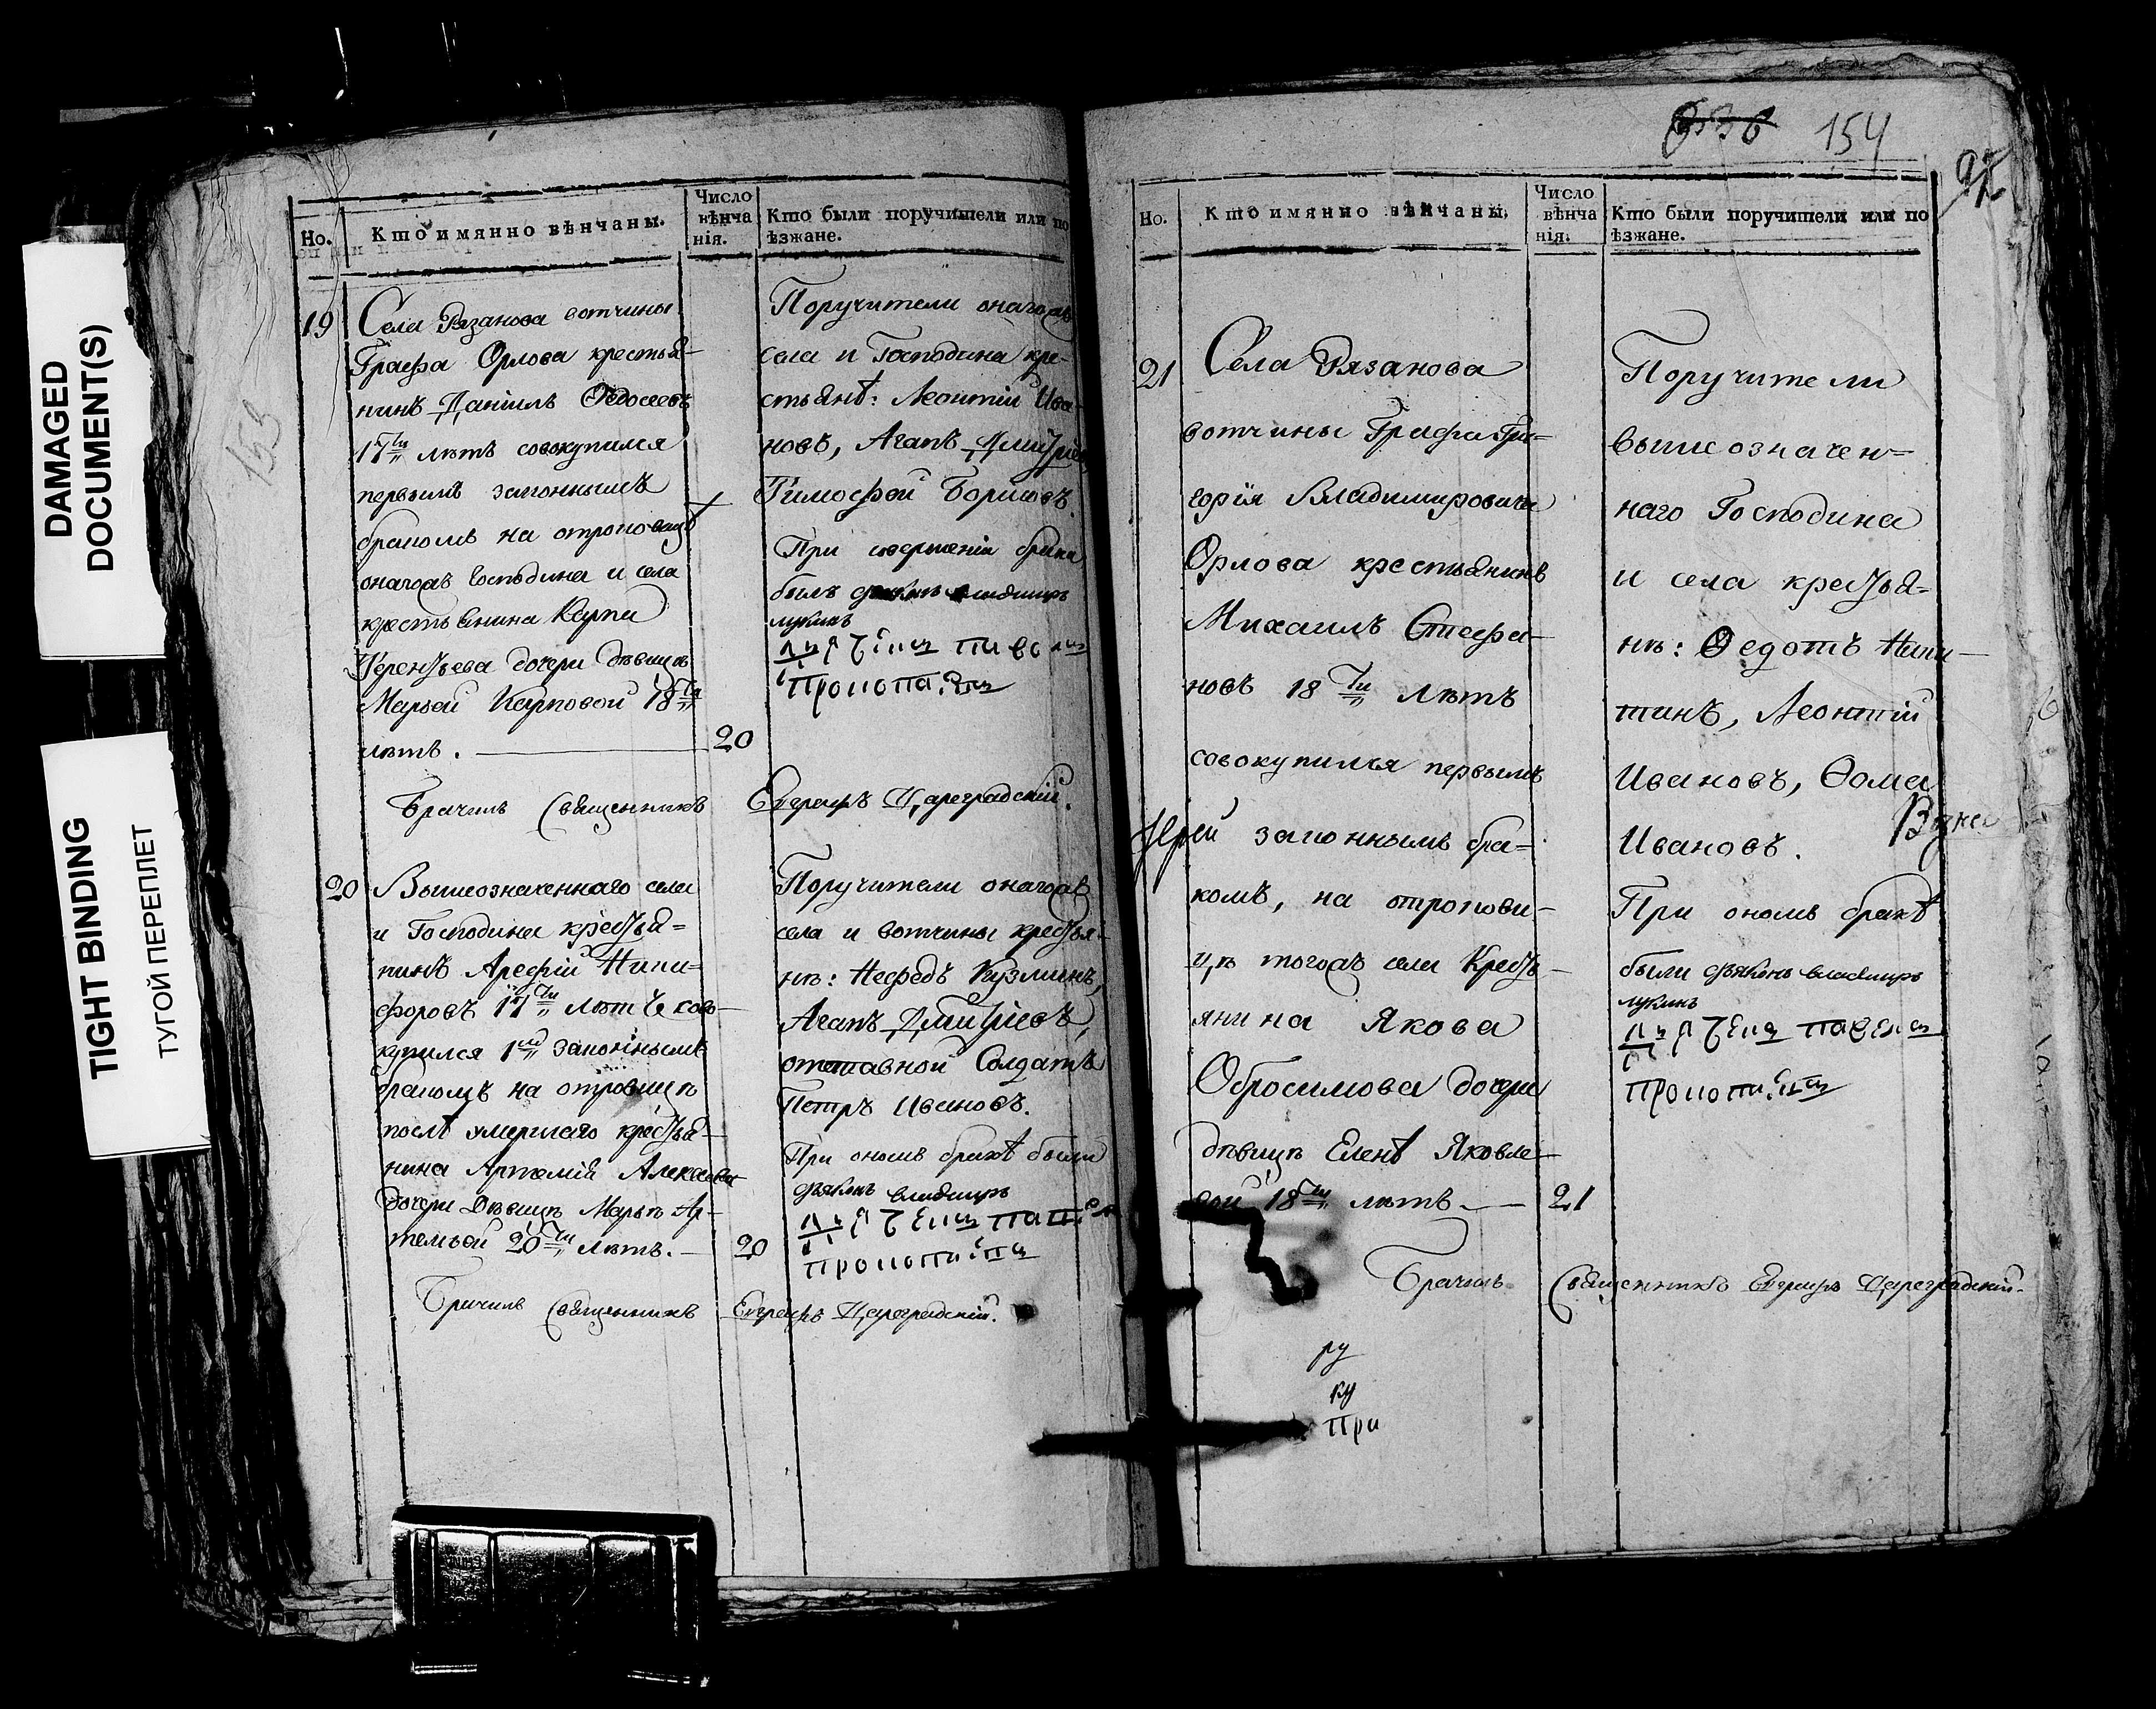 DAMAGED
DOCUMENT(S)
TIGHT BINDING
ТУГОЙ ПЕРЕПЛЕТ
153
Но.
Кто имянно вѣнчаны.
Число
вѣнча
нія.
Кто были поручители или по
ѣзжане.
19
Села Рязанова вотчины
Графа Орлова крестья-
нинъ Даніилъ Ѳедосеевъ
17ти лѣтъ совокупился
первымъ законнымъ
бракомъ на отроковицѣ
оногожъ Господина и села
крестьянина Карпа
Терентьева дочери дѣвицѣ
Марьей Карповой 18ти
лѣтъ.
20
Поручители оногожъ
села и Господина кре-
стьянѣ: Леонтій Ива-
новъ, Агапъ Дмитріев
Тимофей Борисовъ.
При совершеніи брака
былъ дьяконъ владимиръ
лукинъ
прокопи
Брачилъ Священникъ Евграфъ Цареградскій.
20
Вышеозначеннаго села
и Господина крестья=
нинъ Арефій Ники=
форовъ 17ти лѣтъ сово-
купился 1мъ законнымъ
бракомъ на отровицѣ
послѣ умершаго крестья-
нина Артемія Алексѣева
дочери Дѣвицѣ Марьѣ Ар-
темьей 20ти лѣтъ.
20
Поручители оногожъ
села и вотчины крестья-
нѣ: Нефедъ Кузминъ,
Агапъ Дмитріевъ,
отставной Солдатъ
Петръ Ивановъ.
При ономъ бракѣ были
дьяконъ владимиръ
прокопи
Брачилъ Священникъ Евграфъ Цареградскій.
336 154
97
Но.
Кто имянно вѣнчаны,
Число
вѣнча
нія.
Кто были поручители или по
ѣзжане.
21
Села Рязанова
вотчины Графа Гри=
горія Владимировича
Орлова крестьянинъ
Михаилъ Стефа-
новъ 18ти лѣтъ
совокупился первымъ
законнымъ бра=
комъ, на отрокови-
цѣ тогожъ села Кресть-
янина Якова
Обросимова дочери
дѣвицѣ Еленѣ Яковле-
вой 18ти лѣтъ
21
Поручители
вышеозначен=
наго Господина
и села крестья=
нѣ: Ѳедотъ Ники-
тинъ, Леонтій
Ивановъ, Ѳома
Ивановъ.
При ономъ бракѣ
были дьяконъ владимиръ
лукинъ
прокопи
Брачилъ Священникъ Евграфъ Цареградскій.
ру
ку
При